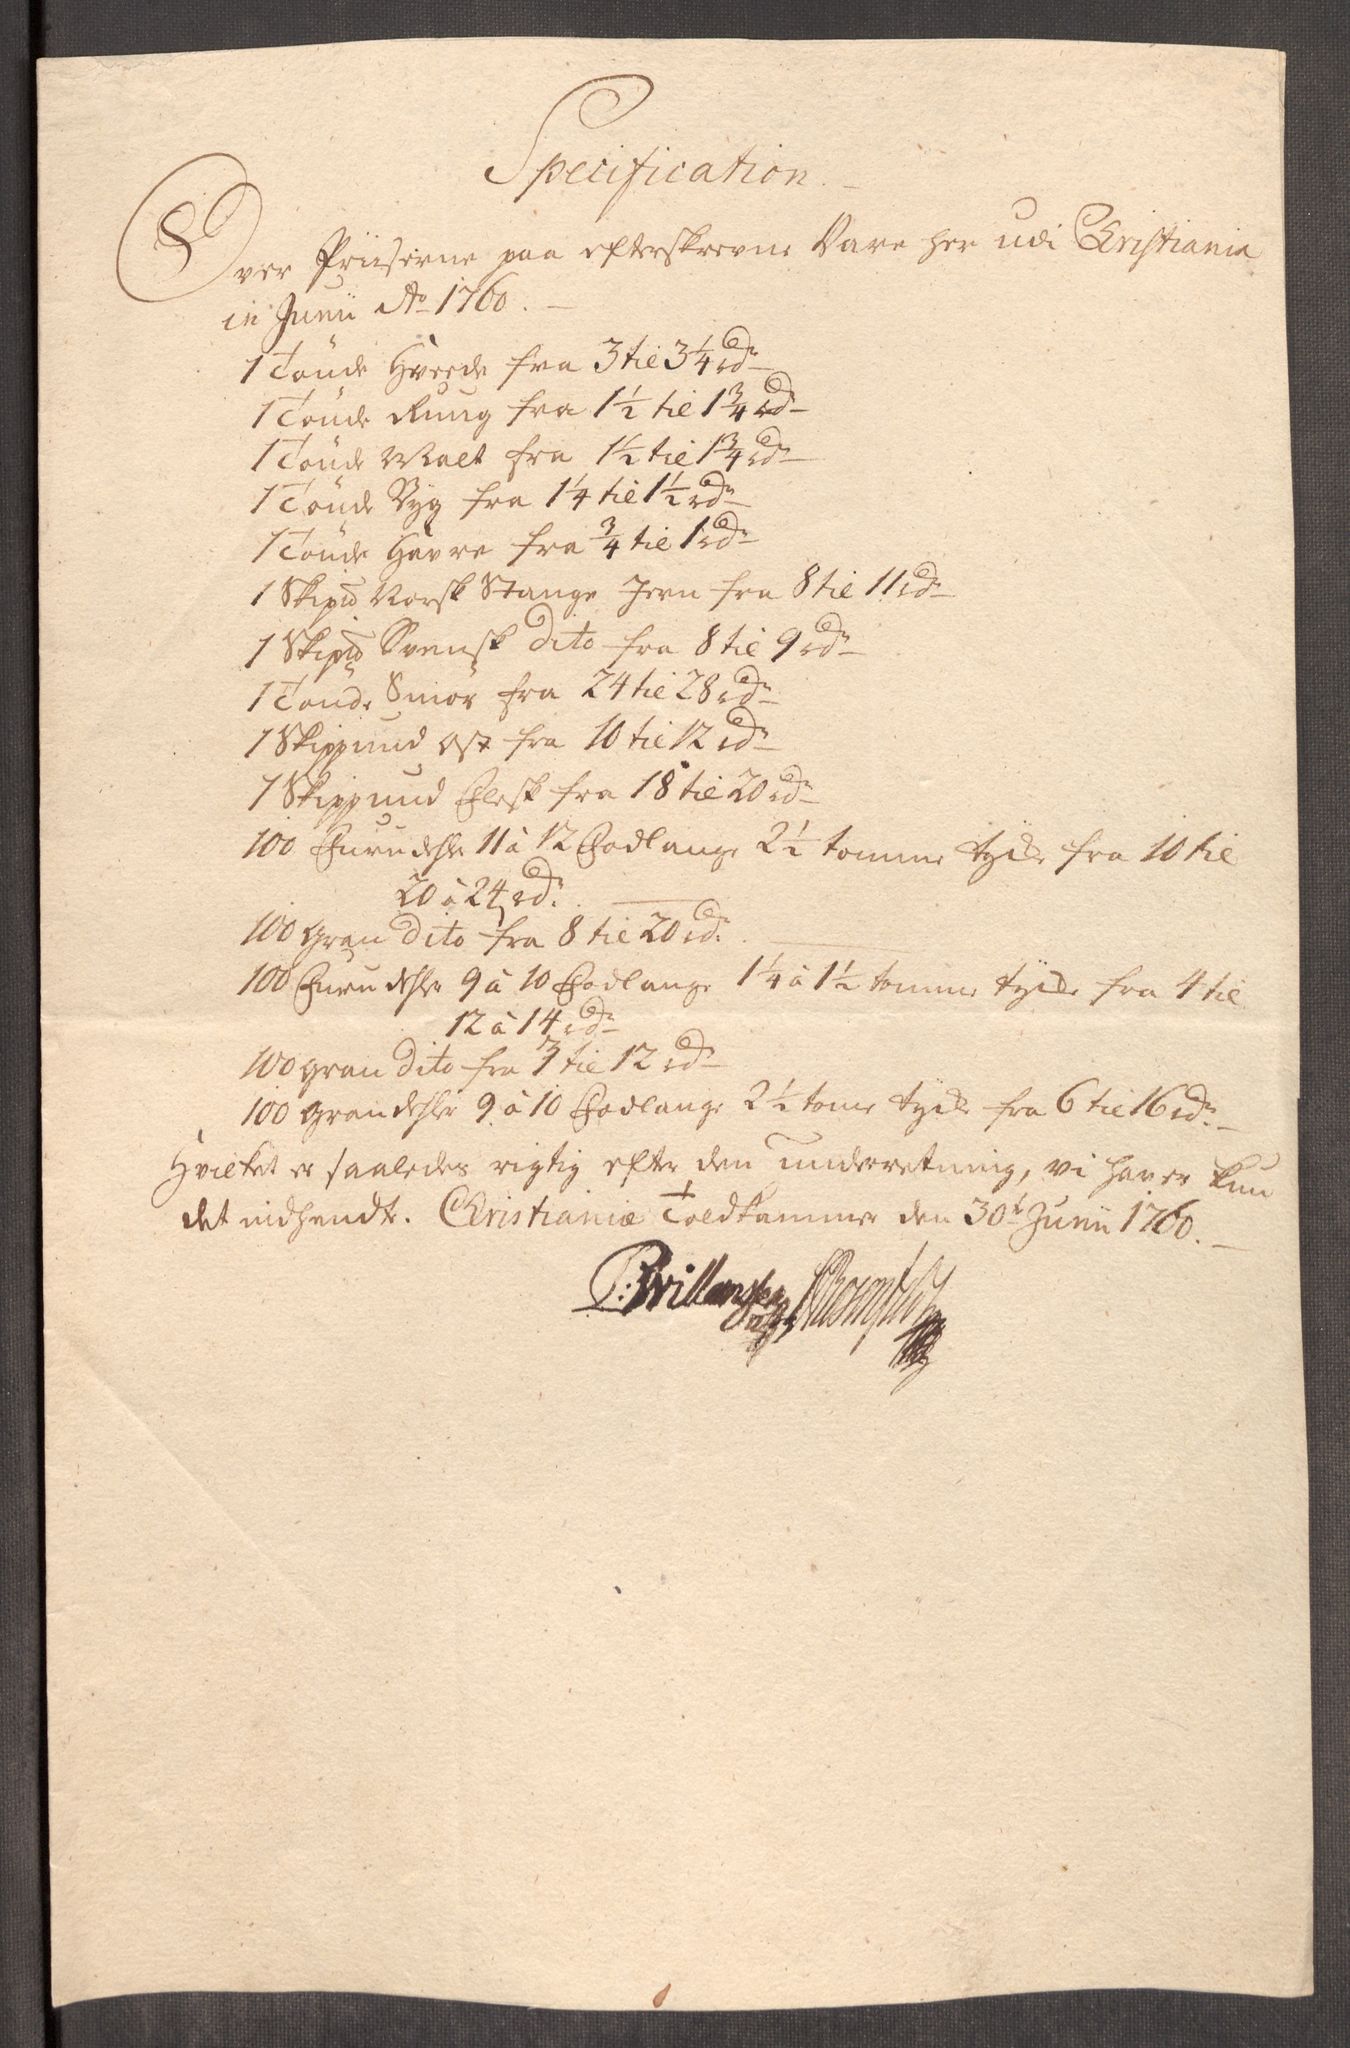 Specification.
Over Priiserne paa efterskrevne Vare her udi Christiania
in Junii Ao 1760.
1 Tönde Hvede fra 3 til 3 1/4 rdr
1 Tönde Rung fra 1 1/2 til 1 3/4 rdr
1 Tönde Malt fra 1 1/2 til 1 3/4 rdr
1 Tönde Byg fra 1 1/4 til 1 1/2 rdr
1 Tönde Havre fra 3/4 til 1 rdr
1 Skipd Norsk Stange Jern fra 8 til 11 rdr
1 Skipd Svensk dito fra 8 til 9 rdr
1 Tönde Smör fra 24 til 28 rdr
1 Skippund Ost fra 10 til 12 rdr
1 Skippund Flesk fra 18 til 20 rdr
100 Furu dehler 11 à 12 Fodlange 2 1/2 tomme tyche fra 10 til
20 à 24 rdr.
100 Gran dito fra 8 til 20 rdr.
100 Furu dehler 9 à 10 Fodlange 1 1/4 à 1 1/2 tomme tyche fra 4 til
12 à 14 rdr
100 gran dito fra 3 til 12 rdr
100 gran dehler 9 à 10 Fodlange 2 1/2 tome tyche fra 6 til 16 rdr.
Hvilket er saaledes rigtig efter den underretning, vi haver kun
det indhendte. Christianiæ Toldkammer den 30t Junii 1760.